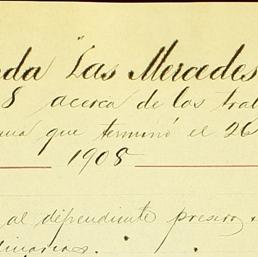 nda "Las Mercedes
8 acerca de los trab
ana que terminó el 26
1908
al dependiente